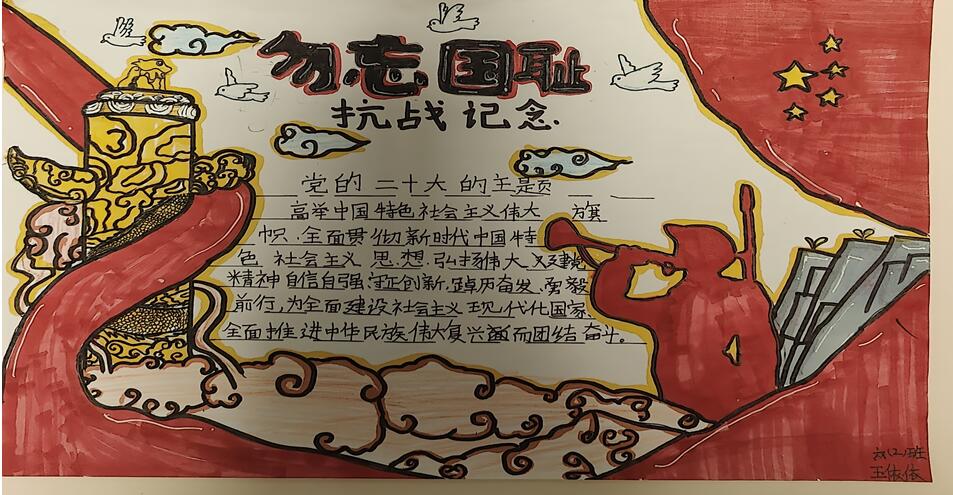 勿忘国耻
抗战记念.
党的二十大的主题
高举中国特色社会主义伟大 旗
帜.全面贯彻新时代中国特
色社会主义思想.弘扬伟大建党
精神自信自强.守正创新.踔厉奋发、勇毅
前行,为全面建设社会主义现代化国家
全面推进中华民族伟大复兴而团结奋斗。
六(2)班
王依依